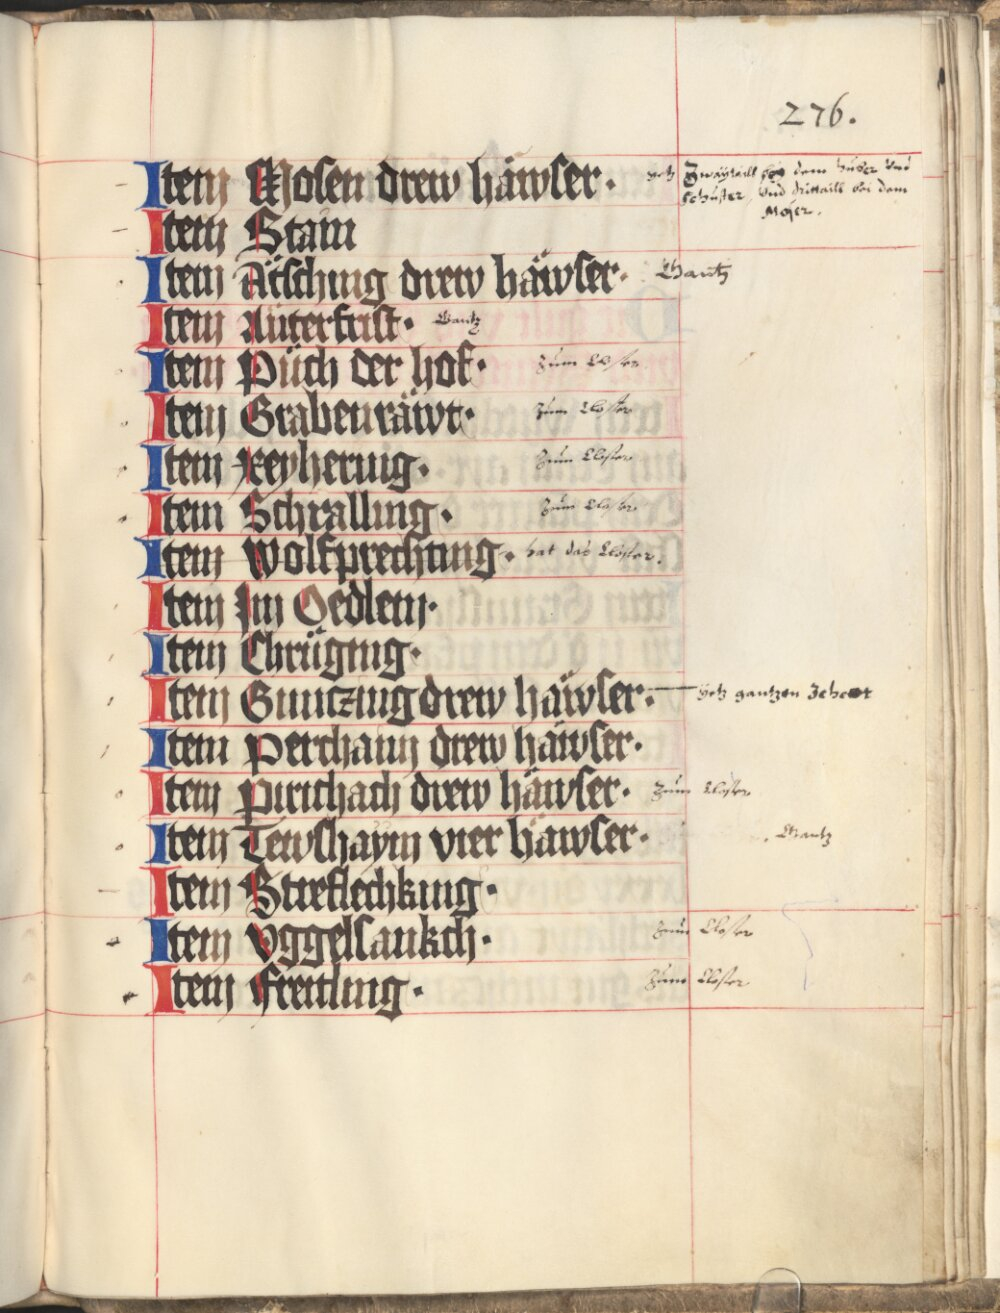 276.
Item Mosen drew häwser. hetz Zwaÿtaill beÿ dem Hueber Vnd
Schuster, Vnd drittaill bei dem
Moser.
Item Stain
Item Ätsching drew häwser. Gantz
Item Auterfrist. Gantz
Item Püch der hof. Zum Closter
Item Grabenräwt. Zum Closter
Item Reyhering. Zum Closter
Item Schralling. Zum Closter
Item Wolfprechting. hat das Closter.
Item Im Oedlein.
Item Chrüging.
Item Guntzing drew häwser. hetz gantzen Zehent
Item Perchaim drew häwser.
Item Pirichach drew häwser. Zum Closter
Item Tewshaym vier häwser. Gantz
Item Streflechking.
Item Yggelsankch. Zum Closter
Item Freitling. Zum Closter